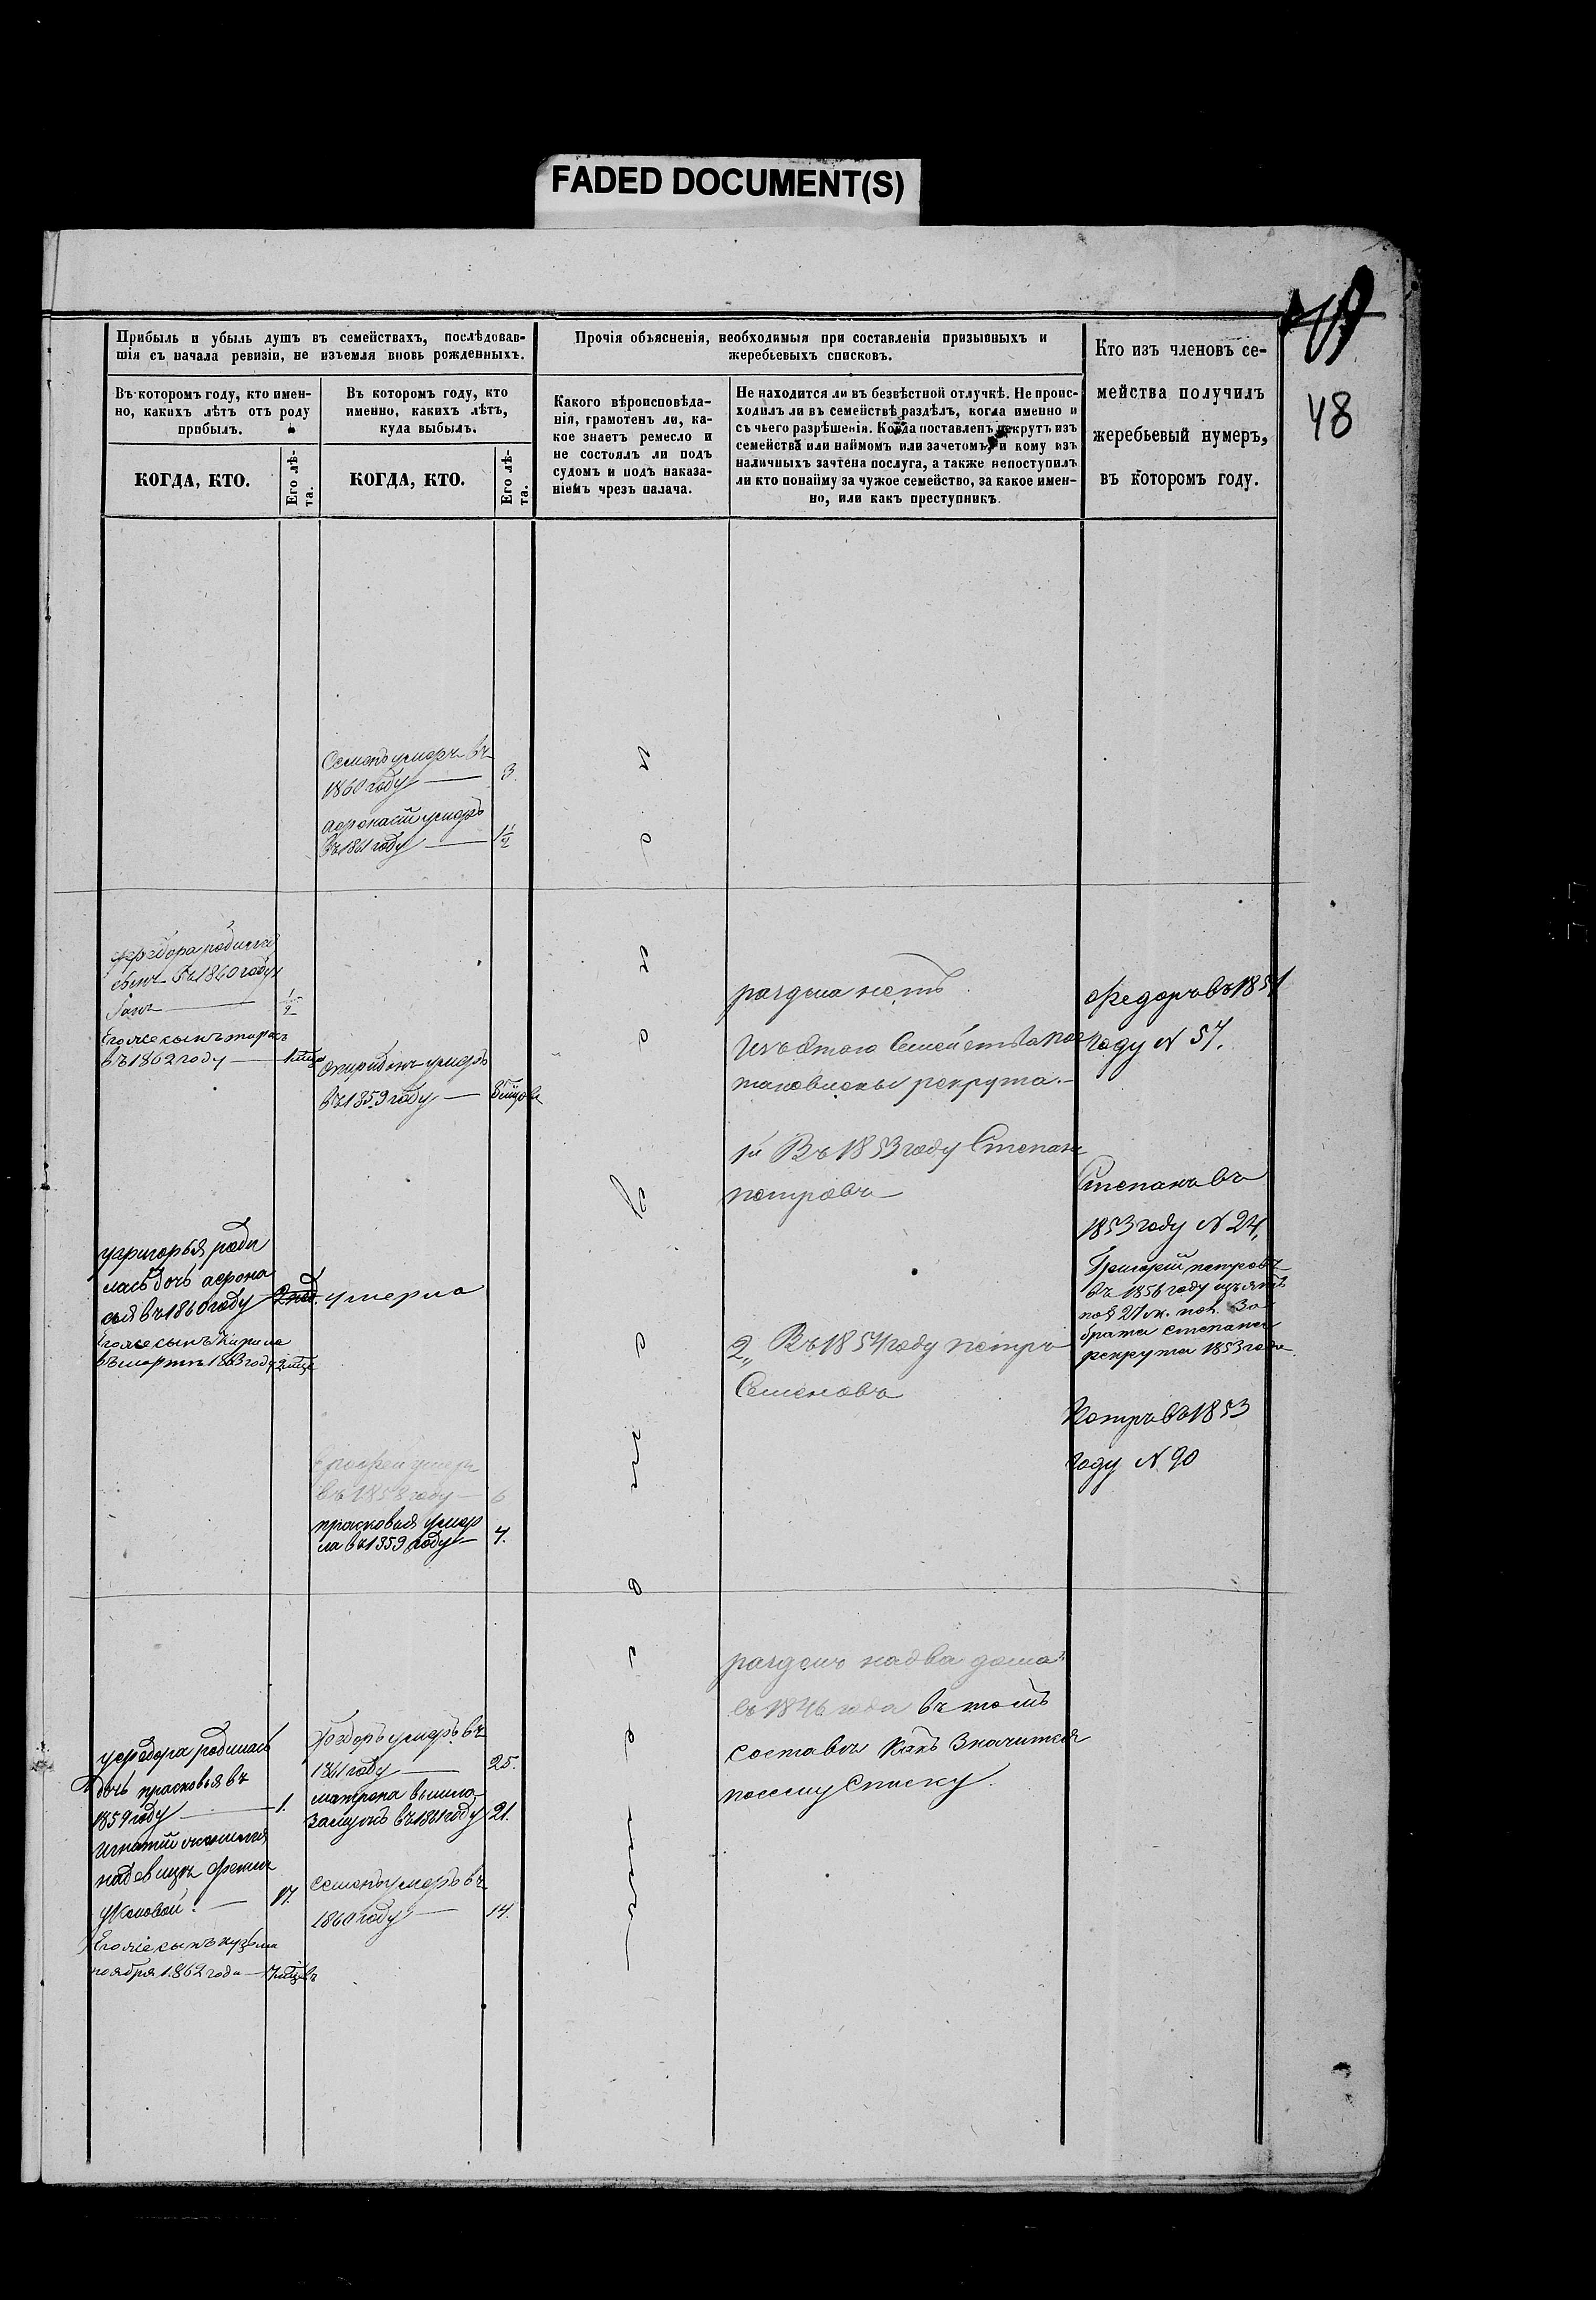 FADED DOCUMENT(S)
48
Прибыль и убыль душъ въ семействахъ, послѣдовав-
шія съ начала ревизіи, не изъемля вновь рожденныхъ.
Въ котором году, кто имен-
но, какихъ лѣтъ отъ роду
прибылъ.
КОГДА, КТО.
Его лѣ-
та.
Въ котором году, кто
именно, какихъ лѣтъ,
куда выбылъ.
КОГДА, КТО.
Его лѣ-
та.
Прочія объясненія, необходимыя при составленіи призывныхъ и
жеребьевыхъ списковъ.
Какого вѣроисповѣда-
нія, грамотенъ ли, ка-
кое знаетъ ремесло и
не состоялъ ли подъ
судомъ и подъ наказа-
ніемъ чрезъ палача.
Не находится ли въ безвѣстной отлучкѣ. Не проис-
ходилъ ли въ семействѣ раздѣлъ, когда именно и
съ чьего разрѣшенія. Когда поставленъ рекрутъ изъ
семейства или наймомъ или зачетомъ, и кому изъ
наличныхъ зачтена послуга, а также непоступилъ
ли кто понайму за чужое семейство, за какое имен-
но, или какъ преступникъ.
Кто изъ членовъ се-
мейства получилъ
жеребьевый нумеръ,
въ которомъ году.
Семенъ умеръ въ
1860 году — 3.
афонасій умеръ
въ 1861 году — 1 1/2
въ 1860 году
1/2
Егоже сынъ тарасъ
въ 1862 году —
умеръ
въ 1859 году —
раздела нетъ.
Изъ этого Семейства пос
тановлены рекрута.
1й Въ 1853 году Степанъ
петровъ
2,, Въ 1854 году петръ
Семеновъ
Федоръ въ 1851
году N 57.
Степанъ въ
1853 году N 24,
Григорій петровъ
въ 1856 году изъятъ
за
брата степана
рекрута 1853 года.
Петръ въ 1853
году N 90
угригорья роди
лась дочь афона
сья въ 1860 году
умерла
Егоже сынъ Кирила
въ марте 1863 году
умеръ
въ 1858 году — 6
прасковья умер
ла въ 1859 году — 4.
уфедора родилась
дочь прасковья въ
1859 году — 1.
Игнатій женился
надевицѣ
— 17.
Егоже сынъ кузьма
ноября 1862 года —
Федоръ умеръ въ
1861 году — 25.
матрена вышла
замужъ въ 1861 году 21.
семенъ умеръ въ
1860 году — 14.
разделъ надва дома
въ 1846 года въ томъ
составѣ какъ значится
посему списку.